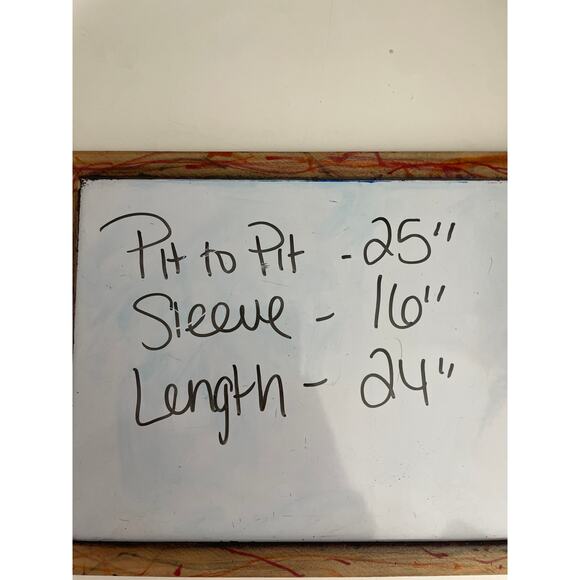 Pit to Pit - 25"
Sleeve - 16"
Length - 24"